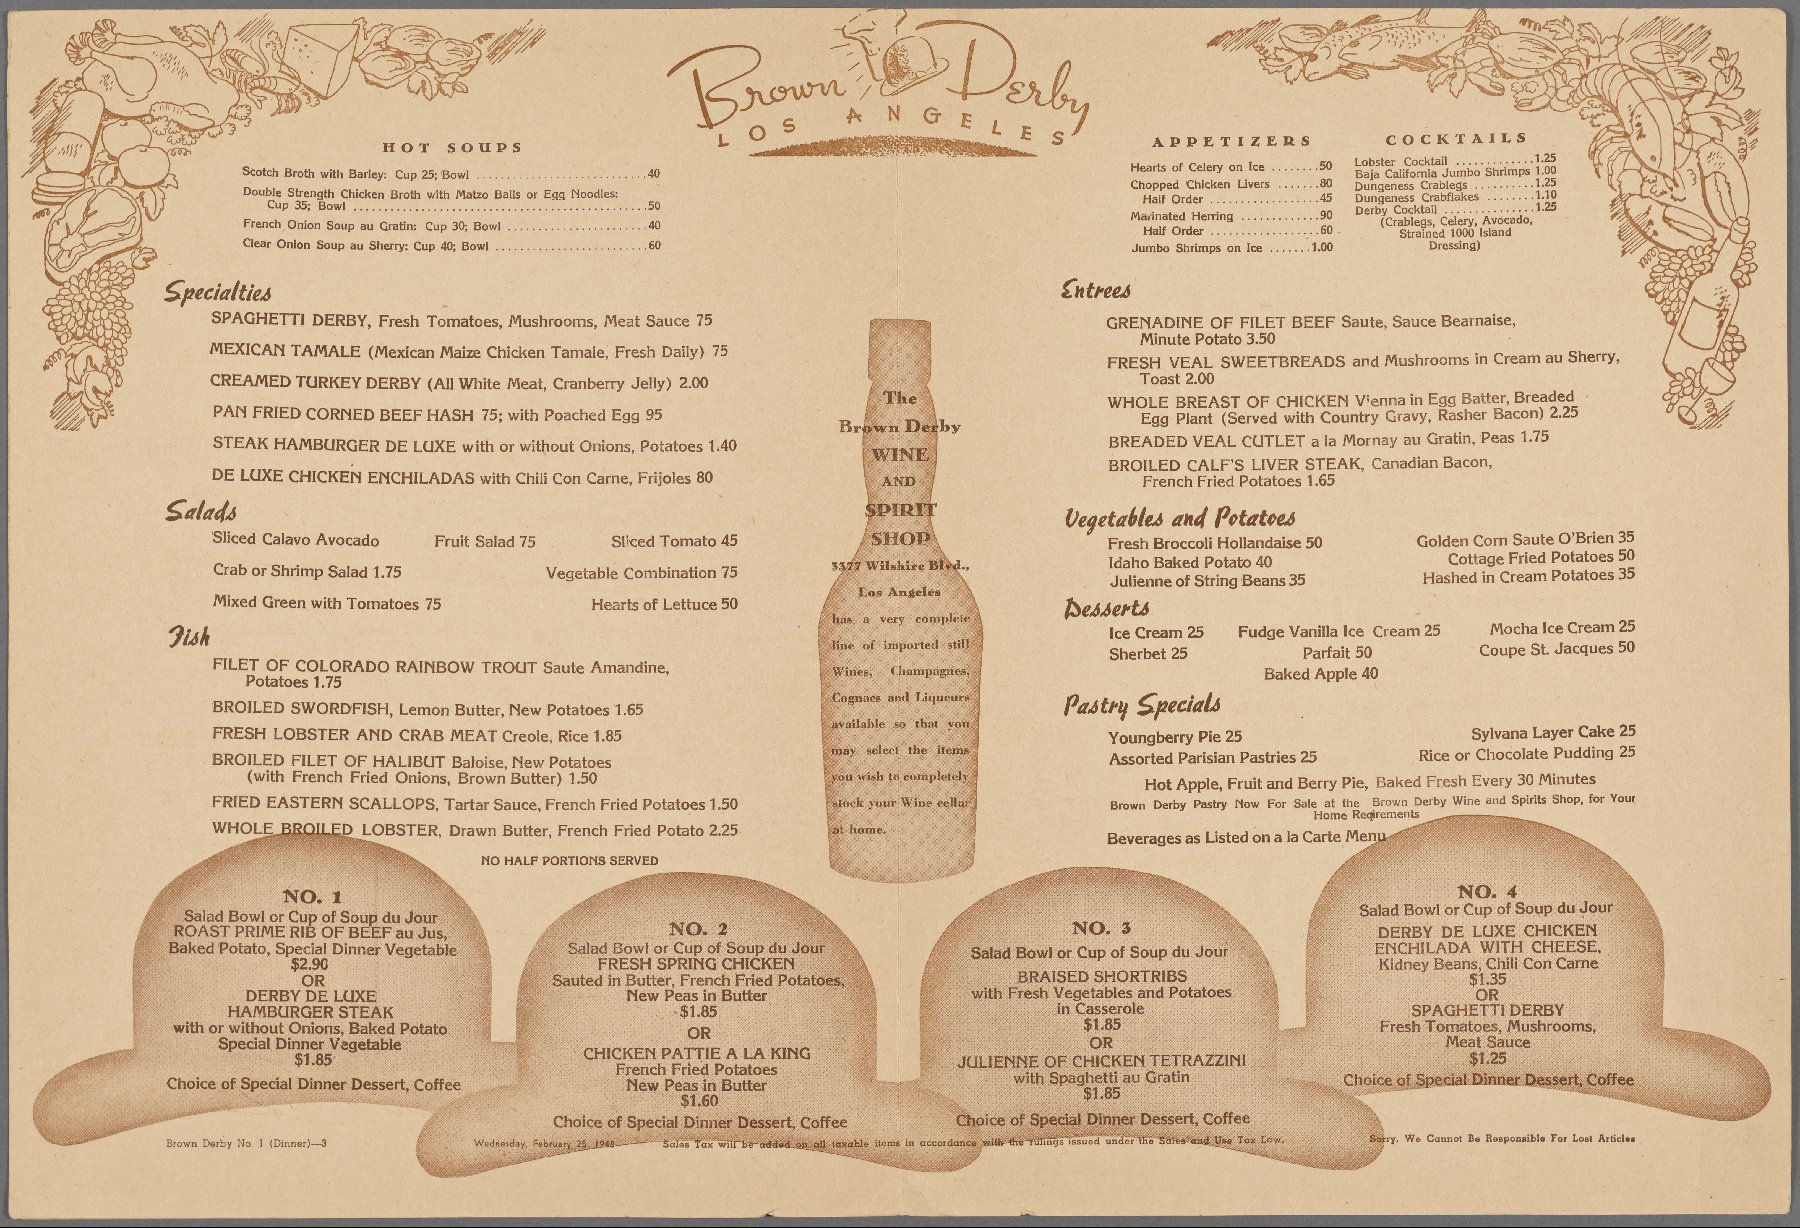 Brown Derby
LOS ANGELES
HOT SOUPS
Scotch Broth with Barley: Cup 25; Bowl ............................40
Double Strength Chicken Broth with Matzo Balls or Egg Noodles:
Cup 35; Bowl ................................................50
French Onion Soup au Gratin: Cup 30; Bowl .......................40
Clear Onion Soup au Sherry: Cup 40; Bowl .........................60
APPETIZERS
Hearts of Celery on Ice ........50
Chopped Chicken Livers .......80
Half Order ..................45
Marinated Herring .............90
Half Order ..................60
Jumbo Shrimps on Ice .......1.00
COCKTAILS
Lobster Cocktail .............1.25
Baja California Jumbo Shrimps 1.00
Dungeness Crablegs ..........1.25
Dungeness Crabflakes .........1.10
Derby Cocktail ...............1.25
(Crablegs, Celery, Avocado,
Strained 1000 Island
Dressing)
Specialties
SPAGHETTI DERBY, Fresh Tomatoes, Mushrooms, Meat Sauce 75
MEXICAN TAMALE (Mexican Maize Chicken Tamale, Fresh Daily) 75
CREAMED TURKEY DERBY (All White Meat, Cranberry Jelly) 2.00
PAN FRIED CORNED BEEF HASH 75; with Poached Egg 95
STEAK HAMBURGER DE LUXE with or without Onions, Potatoes 1.40
DE LUXE CHICKEN ENCHILADAS with Chili Con Carne, Frijoles 80
Salads
Sliced Calavo Avocado Fruit Salad 75 Sliced Tomato 45
Crab or Shrimp Salad 1.75 Vegetable Combination 75
Mixed Green with Tomatoes 75 Hearts of Lettuce 50
Fish
FILET OF COLORADO RAINBOW TROUT Saute Amandine,
Potatoes 1.75
BROILED SWORDFISH, Lemon Butter, New Potatoes 1.65
FRESH LOBSTER AND CRAB MEAT Creole, Rice 1.85
BROILED FILET OF HALIBUT Baloise, New Potatoes
(with French Fried Onions, Brown Butter) 1.50
FRIED EASTERN SCALLOPS, Tartar Sauce, French Fried Potatoes 1.50
WHOLE BROILED LOBSTER, Drawn Butter, French Fried Potato 2.25
NO HALF PORTIONS SERVED
The
Brown Derby
WINE
AND
SPIRIT
SHOP
3377 Wilshire Blvd.,
Los Angeles
has a very complete
line of imported still
Wines, Champagnes,
Cognacs and Liqueurs
available so that you
may select the items
you wish to completely
stock your Wine cellar
at home.
Entrees
GRENADINE OF FILET BEEF Saute, Sauce Bearnaise,
Minute Potato 3.50
FRESH VEAL SWEETBREADS and Mushrooms in Cream au Sherry,
Toast 2.00
WHOLE BREAST OF CHICKEN Vienna in Egg Batter, Breaded
Egg Plant (Served with Country Gravy, Rasher Bacon) 2.25
BREADED VEAL CUTLET a la Mornay au Gratin, Peas 1.75
BROILED CALF'S LIVER STEAK, Canadian Bacon,
French Fried Potatoes 1.65
Vegetables and Potatoes
Fresh Broccoli Hollandaise 50 Golden Corn Saute O'Brien 35
Idaho Baked Potato 40 Cottage Fried Potatoes 50
Julienne of String Beans 35 Hashed in Cream Potatoes 35
Desserts
Ice Cream 25 Fudge Vanilla Ice Cream 25 Mocha Ice Cream 25
Sherbet 25 Parfait 50 Coupe St. Jacques 50
Baked Apple 40
Pastry Specials
Youngberry Pie 25 Sylvana Layer Cake 25
Assorted Parisian Pastries 25 Rice or Chocolate Pudding 25
Hot Apple, Fruit and Berry Pie, Baked Fresh Every 30 Minutes
Brown Derby Pastry Now For Sale at the Brown Derby Wine and Spirits Shop, for Your
Home Reqirements
Beverages as Listed on a la Carte Menu
NO. 1
Salad Bowl or Cup of Soup du Jour
ROAST PRIME RIB OF BEEF au Jus,
Baked Potato, Special Dinner Vegetable
$2.90
OR
DERBY DE LUXE
HAMBURGER STEAK
with or without Onions, Baked Potato
Special Dinner Vegetable
$1.85
Choice of Special Dinner Dessert, Coffee
NO. 2
Salad Bowl or Cup of Soup du Jour
FRESH SPRING CHICKEN
Sauted in Butter, French Fried Potatoes,
New Peas in Butter
$1.85
OR
CHICKEN PATTIE A LA KING
French Fried Potatoes
New Peas in Butter
$1.60
Choice of Special Dinner Dessert, Coffee
NO. 3
Salad Bowl or Cup of Soup du Jour
BRAISED SHORTRIBS
with Fresh Vegetables and Potatoes
in Casserole
$1.85
OR
JULIENNE OF CHICKEN TETRAZZINI
with Spaghetti au Gratin
$1.85
Choice of Special Dinner Dessert, Coffee
NO. 4
Salad Bowl or Cup of Soup du Jour
DERBY DE LUXE CHICKEN
ENCHILADA WITH CHEESE,
Kidney Beans, Chili Con Carne
$1.35
OR
SPAGHETTI DERBY
Fresh Tomatoes, Mushrooms,
Meat Sauce
$1.25
Choice of Special Dinner Dessert, Coffee
Brown Derby No. 1 (Dinner)—3
Wednesday, February 25, 1948
Sales Tax will be added on all taxable items in accordance with the rulings issued under the Sales and Use Tax Law.
Sorry, We Cannot Be Responsible For Lost Articles